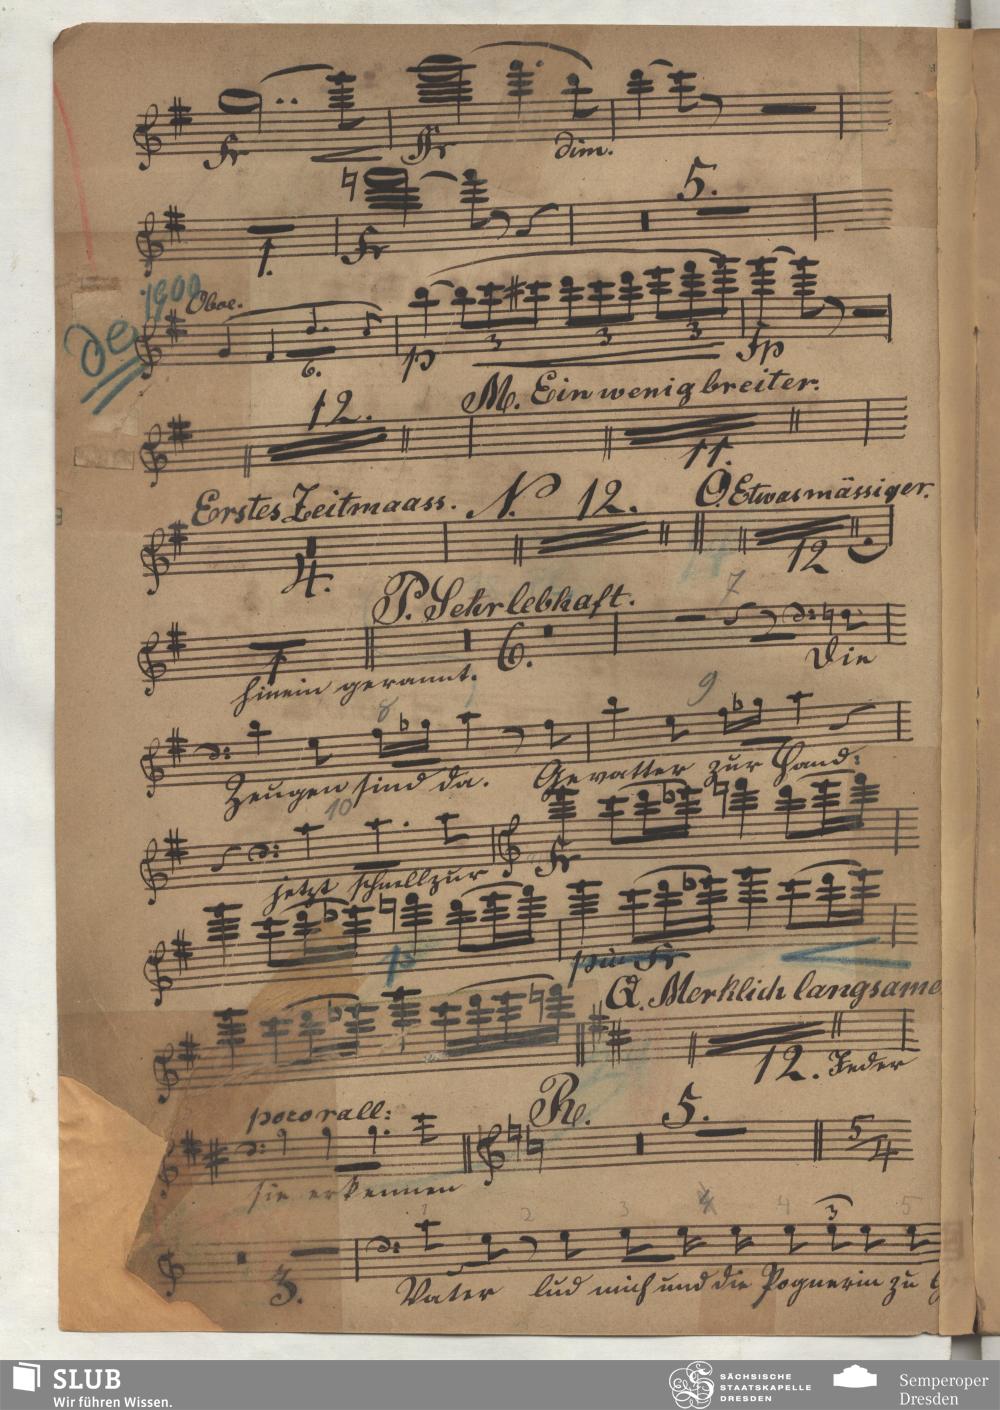 fr fr dim.
5.
1. fr
1900 Oboe.
6. p 3 3 3 fp
12. M. Ein wenig breiter.
11.
Erstes Zeitmaass. N. 12. O. Etwas mässiger.
4. 12
P. Sehr lebhaft. 7
1 6.
hinein gerannt. Die
8 9
Zeugen sind da. Gevatter zur Hand:
10
jetzt schnell zur fr
p più fr
Q. Merklich langsame
12. Jeder
poco rall: R. 5. 5/4
sie erkennen
1 2 3 4 4 3 5
3. Vater lud mich und die Pognerin zu
SLUB
Wir führen Wissen.
SÄCHSISCHE
STAATSKAPELLE
DRESDEN
Semperoper
Dresden